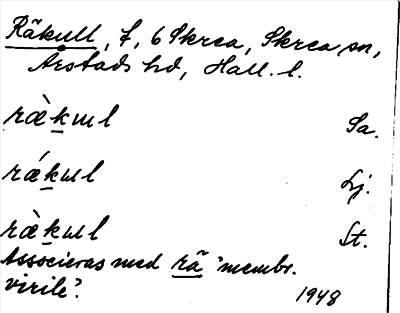 Räkull, f, 6 Skrea, Skrea sn,
Årstads hd, Hall. l.
ræ̀kɯl Sa.
rǽkɯl Lj.
ræ̀kɯl St.
Associeras med rä 'membr.
virile'.
1948